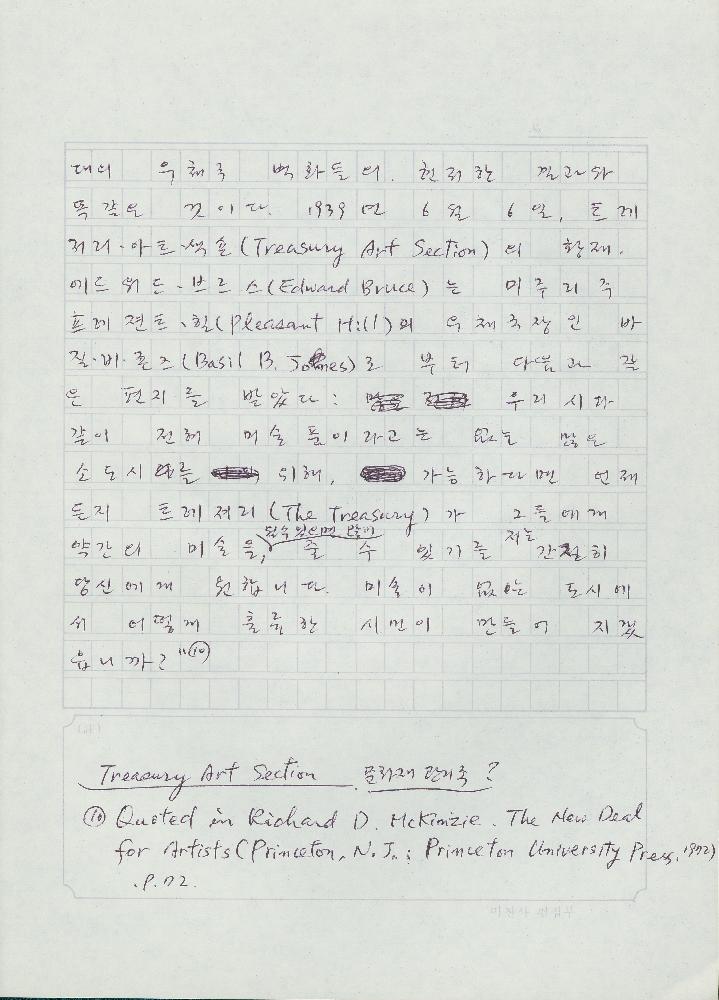 대의 우체국 벽화들의. 현저한 결과와
똑같은 것이다. 1939년 6월 6일, 트레
저리·아트·섹숀(Treasury Art Section)의 황제.
에드워드·브르스(Edward Bruce)는 미주리주
프레젼트·힐(Pleasant Hill)의 우체국장인 바
질·비·죤즈(Basil B. Jones)로 부터 다음과 같
은 편지를 받았다: 우리 시와
같이 전혀 미술품이라고는 없는 많은
소도시를 위해, 가능하다면 언제
든지 트레져리(The Treasury)가 그들에게
될수있으면 많이
약간의 미술을, 줄 수 있기를 저는 간절히
당신에게 원합니다. 미술이 없는 도시에
서 어떻게 훌륭한 시민이 만들어 지겠
읍니까?"⑩
Treasury Art Section 문화재 관리국?
⑩ Quoted in Richard D. McKinzie. The New Deal
for Artists (Princeton, N.J.; Princeton University Press, 1972)
.P.72.